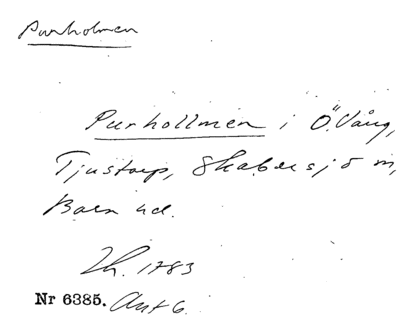 Purholmen
Purhollmen i Ö. Vång,
Tjustorp, Skabersjö sn,
Bara hd.
Lh. 1783
Nr 6385. Akt 6.